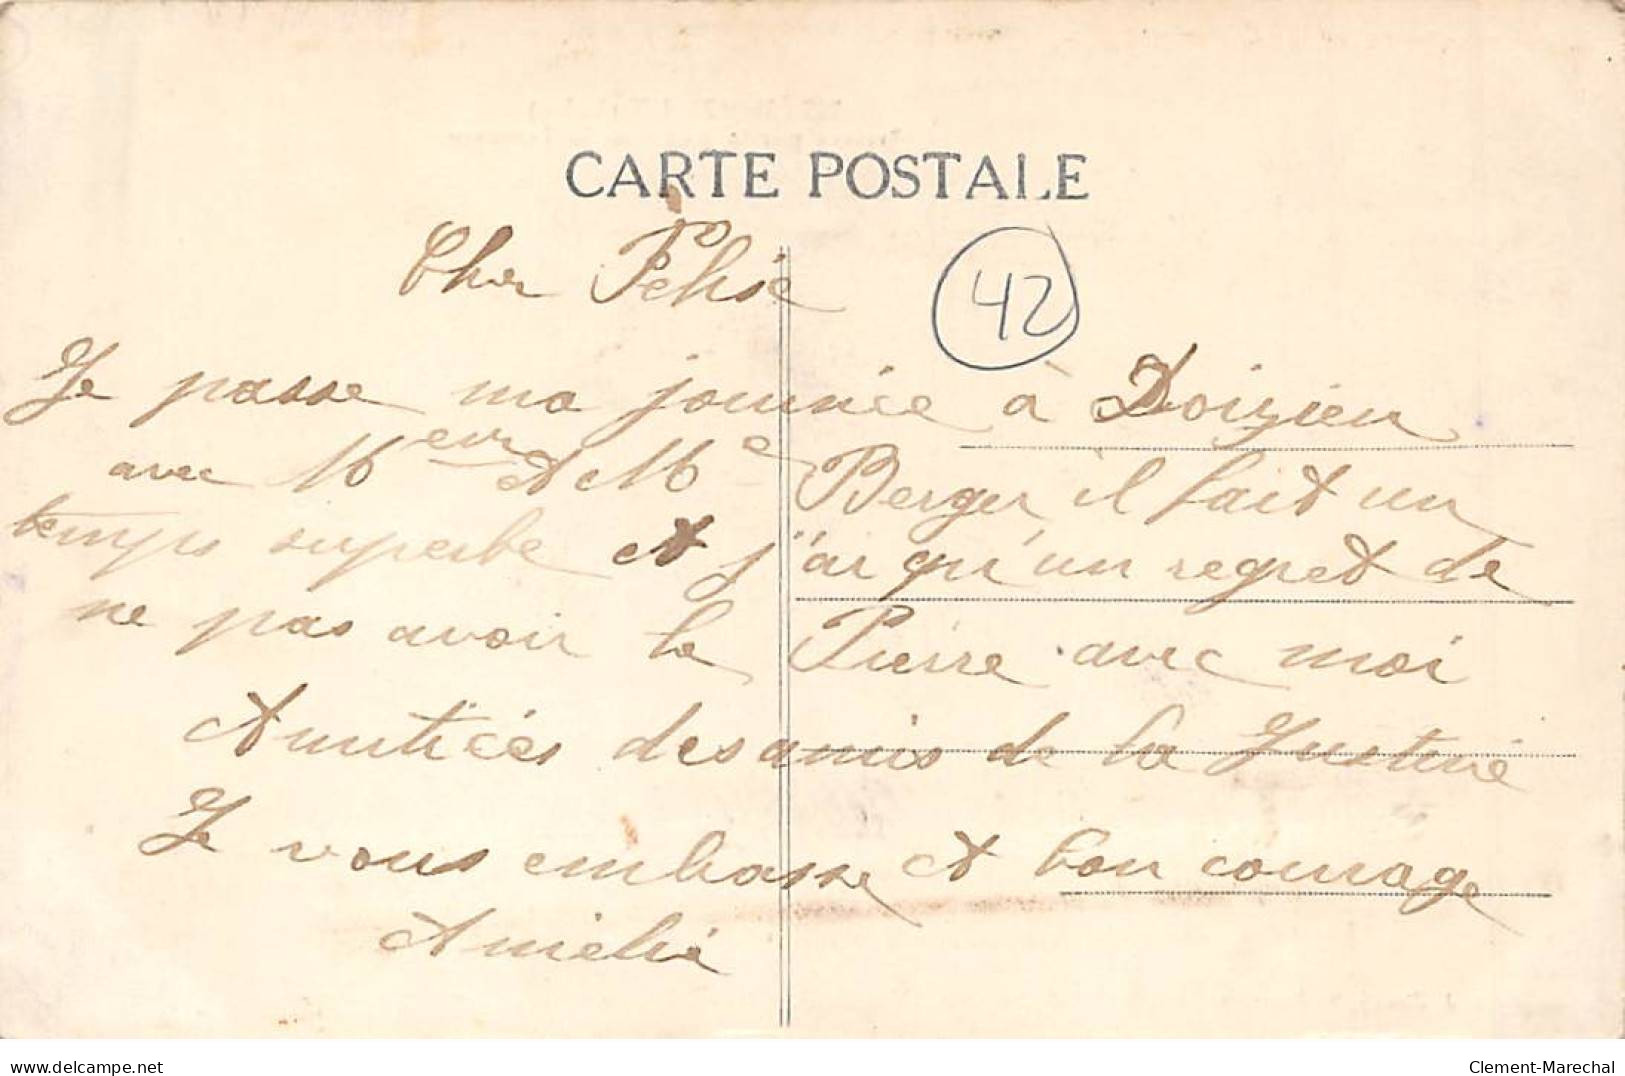 CARTE POSTALE
42
Cher Félise
Je passe ma journée à Doizieu
avec Meur et Me Berger, il fait un
temps superbe et j'ai qu'un regret de
ne pas avoir le Pierre avec moi
Amitiées des amis de la Justine
Je vous embrasse et bon courage
Amélie
delcampe.net
Clement-Marechal